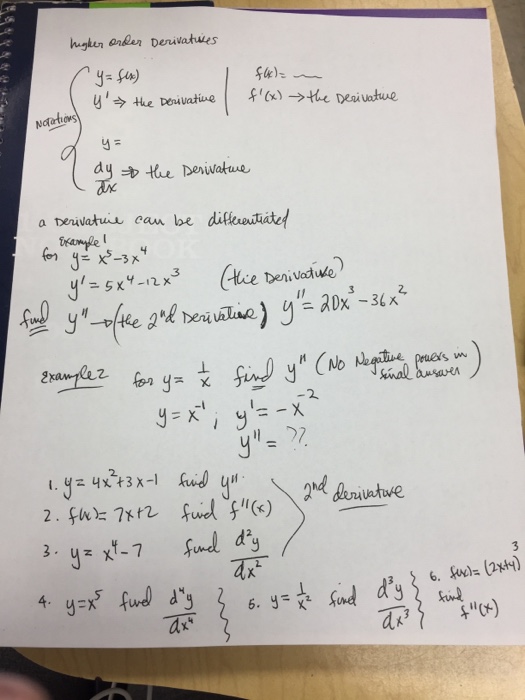 higher order Derivatives
y = f(x) | f(x) = ~
Notations y' ⇒ the Derivative | f'(x) → the Derivative
y =
dy/dx ⇒ the Derivative
a Derivative can be differentiated
Example 1
for y = x⁵ - 3x⁴
y' = 5x⁴ - 12x³ (the Derivative)
find y'' → (the 2nd Derivative) y'' = 20x³ - 36x²
Example 2 for y = 1/x find y'' (No Negative powers in final answer)
y = x⁻¹ ; y' = -x⁻²
y'' = ??
1. y = 4x² + 3x - 1 find y''
2. f(x) = 7x + 2 find f''(x) 2nd derivative
3. y = x⁴ - 7 find d²y/dx²
4. y = x⁵ find d⁴y/dx⁴ } 5. y = 1/x² find d³y/dx³ } 6. f(x) = (2x+4)³ find f''(x)